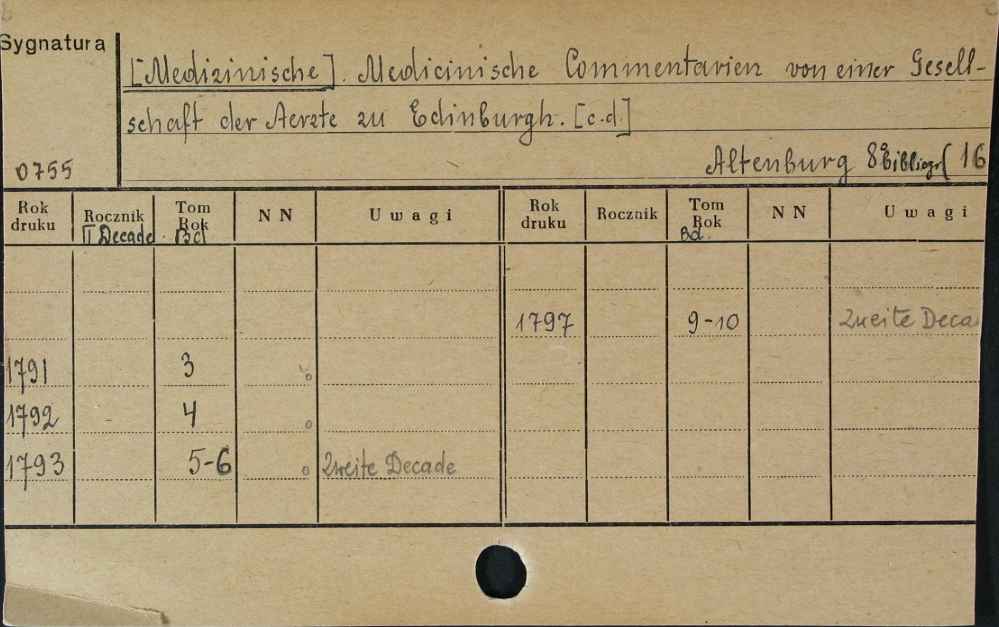 Sygnatura
[Medizinische]. Medicinische Commentarien von einer Gesell-
schaft der Aerzte zu Edinburgh. [c.d.]
0755
Altenburg 8° Bibliogr( 16
Rok druku Rocznik Tom Rok N N Uwagi Rok druku Rocznik Tom Rok N N Uwagi
II Decade Bd Bd.
1797 9-10 Zweite Deca
1791 3
1792 4
1793 5-6 Zweite Decade